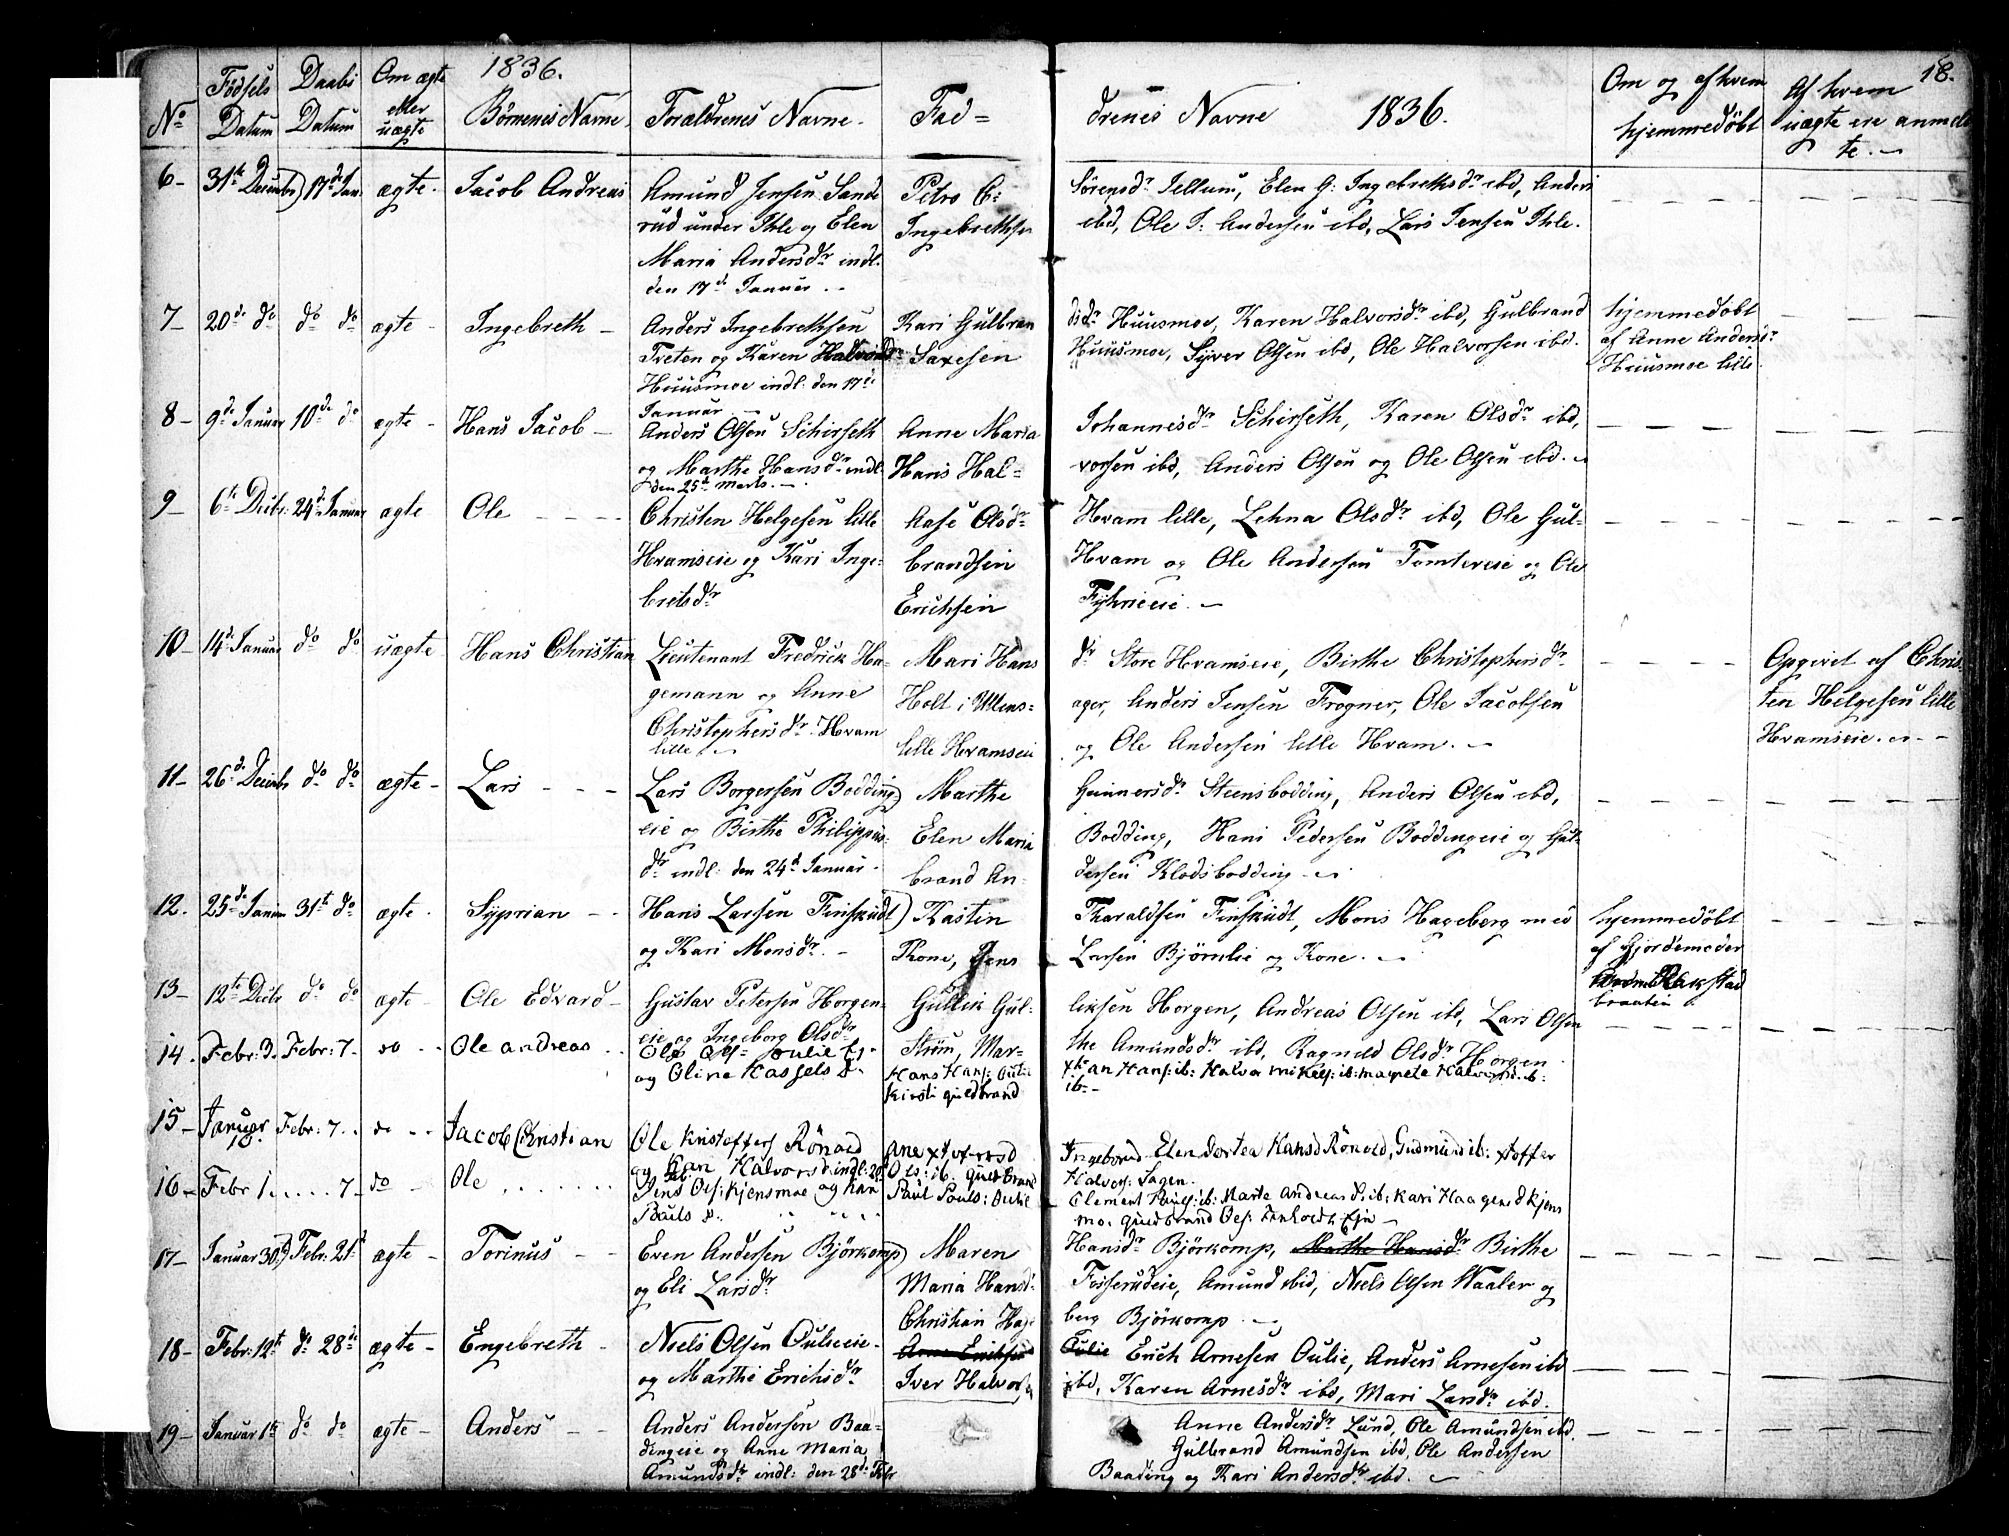 1836.
18.
No
Fødsels Datum
Daabs Datum
Om ægte eller uægte
Børnenes Navne
Forældrenes Navne.
Fad=
drenes Navne 1836.
Om og af hvem hjemmedøbt
Af hvem uægte ere anmeldte.
6 31te Decembr 17de Jan. ægte. Jacob Andreas
Amund Jensen Sande
rud under Ihle og Elen
Maria Andersdr indl.
den 17de Januar.
Petro C:
Ingebrethsen
Sørensdr Jellum, Elen G: Ingebrethsdr ibd, Anders
ibd, Ole J: Andersen ibd, Lars Jensen Ihle.
7 20de do do do ægte Ingebreth
Anders Ingebrethsen
Treten og Karen Halvorsdr
Huusmoe indl: den 17de
Januar
Kari Gulbran
Saxesen
dsdr Huusmoe, Karen Halvorsdr ibd, Gulbrand
Huusmoe, Syver Olsen ibd, Ole Halvorsen ibd.
hjemmedøbt
af Anne Andersdr
Huusmoe lille
8 9de Januar 10de do ægte Hans Jacob
Anders Olsen Schirseth
og Marthe Hansdr indl
den 25de Marts.
Anne Maria
Hans Hal=
Johannesdr Schirseth, Karen Olsdr ibd,
vorsen ibd, Anders Olsen og Ole Olsen ibd.
9 6te Decbr: 24de Januar ægte Ole
Christen Helgesen lille
Hvamseie og Kari Inge=
bretsdr
Aase Olsdr
brandsen
Erichsen
Hvam lille, Lehna Olsdr ibd, Ole Gul=
Hvam og Ole Andersen Tomtereie og Ole
10 14de Januar do do uægte Hans Christian
Lieutenant Fredrick Ha=
gemann og Anne
Christophersdr Hvam
lille
Mari Hans
Holt i Ullens=
lille Hvamseie
dr Store Hvamseie, Birthe Christophersdr
ager, Anders Jensen Frogner, Ole Jacobsen
og Ole Andersen lille Hvam.
Opgivet af Chris
ten Helgesen lille
Hvamseie.
11 26de Decbr do do ægte Lars
Lars Borgersen Bodding
eie og Birthe Philippus=
dr indl: den 24de Januar.
Marthe
Elen Maria
brand An=
Gunnersdr Steensbodding, Anders Olsen ibd,
Bodding, Hans Pedersen Boddingeie og Gul=
dersen Klodsbodding
12. 25de Januar 31te do ægte. Syprian
Hans Larsen Finskudt
og Kari Monsdr.
Kastin
Kone, Jens
Tharaldsen Finskudt, Mons Hageberg med
Larsen Björnlie og Kone.
hjemmedøbt
af Gjordemoder
braaten
13 12te Decbr do do ægte Ole Edvard
Gustav Petersen Horgen=
eie og Ingeborg Olsdr
Gullik Gul=
Strøm, Mar=
liksen Horgen, Andreas Olsen ibd, Lars Olsen
the Amundsdr ibd, Ragnild Olsdr Horgen
14. Febr: 3. Febr: 7. do Ole Andreas
og Oline Kassels d.
Hans Hans: Oulie
Kirsti Guldbrand
ib:
15 Januar 18. Febr: 7. do Jacob Christian
Ole Kristoffers Rönold
og Kari Halvors d: indl: 20
Ols: ib. Guldbrand
Elen Dortea Hansd Rönold, Gudmund ib: xtoffer
Halvors:
16 Febr 1. 7 do Ole
Jens Ols: Kjensmoe og Kari
Pauls d.
Paul Pouls: Oulie
Clement Pauls: ib: Marte Andreas d: ib: Kari Haagens d Kjens
mo. Guldbrand Ols:
17 Januar 30. Febr: 21de ægte Torinus
Even Andersen Björkomp
og Eli Larsdr
Maren
Maria Hansd
Christian Hage
Hansdr Björkomp, Marthe Hansdr Birthe
Fosserudeie, Amund ibid, Niels Olsen Waaler og
berg Björkomp.
18 Febr: 12te do 28de ægte Engebreth
Niels Olsen Oulieeie
og Marthe Erichsdr
Arne Erichsen
Iver Halvorsen
Oulie Erich Arnesen Oulie, Anders Arnesen ibd
ibd, Karen Arnesdr ibd, Mari Larsdr ibd.
19 Januar 1te do do ægte Anders
Anders Andersen Baa=
dingeie og Anne Maria
Amundsdr indl: den 28de Febr
Anne Andersdr Lund, Ole Amundsen ibd.
Gulbrand Amundsen ibd, Ole Andersen
Baading og Kari Andersdr ibd.